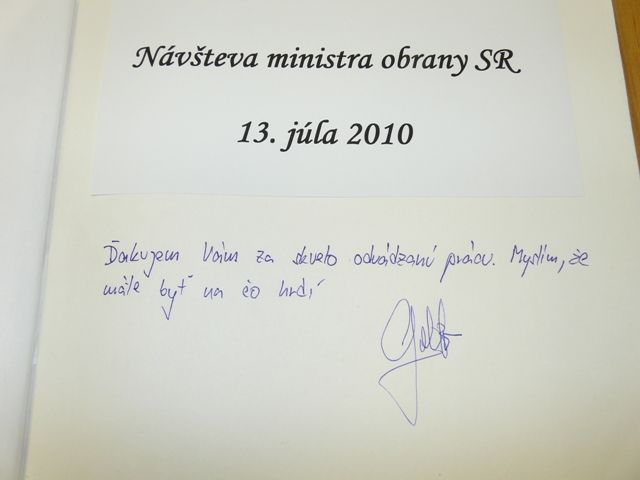 Návšteva ministra obrany SR
13. júla 2010
Ďakujem Vám za skvelo odvádzanú prácu. Myslím, že
máte byť na čo hrdí